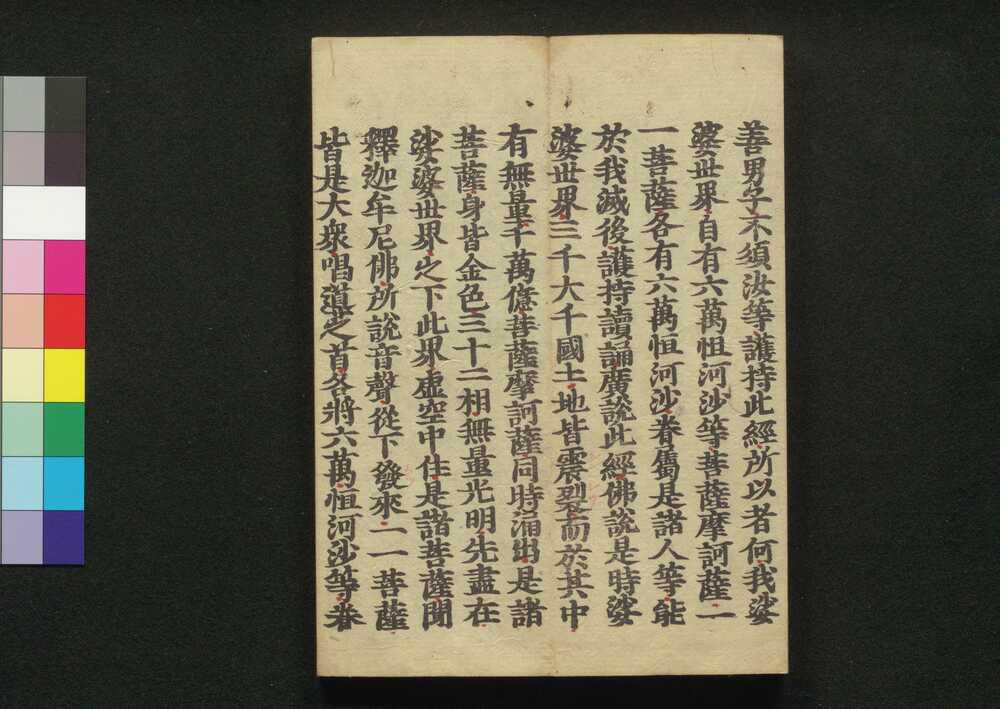 善男子不須汝等護持此經所以者何我娑
婆世界自有六萬恒河沙等菩薩摩訶薩一
一菩薩各有六萬恒河沙眷屬是諸人等能
於我滅後護持讀誦廣說此經佛說是時娑
婆世界三千大千國土地皆震裂而於其中
有無量千萬億菩薩摩訶薩同時涌出是諸
菩薩身皆金色三十二相無量光明先盡在
娑婆世界之下此界虛空中住是諸菩薩聞
釋迦牟尼佛所說音聲從下發來一一菩薩
皆是大衆唱導之首各將六萬恒河沙等眷